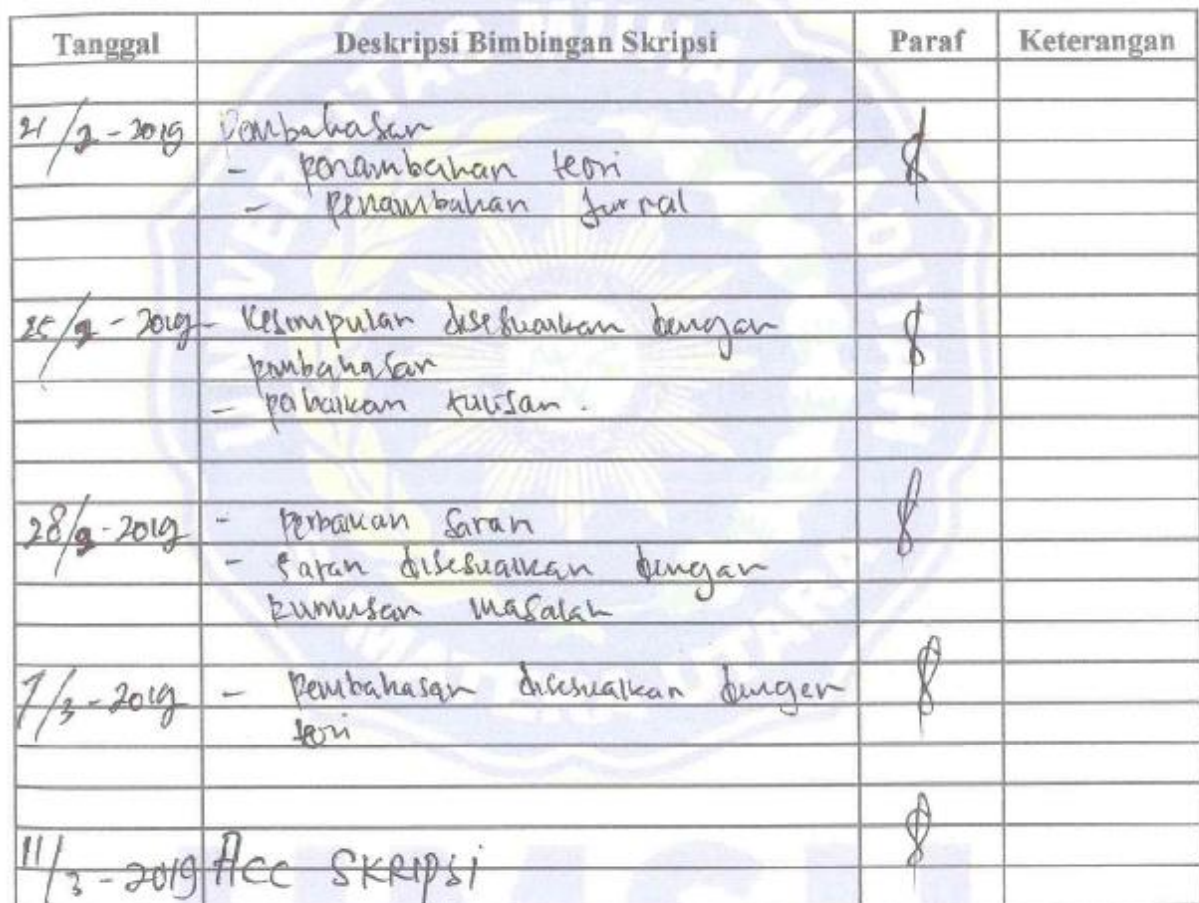 Tanggal Deskripsi Bimbingan Skripsi Paraf Keterangan
21/2-2019 Pembahasan
- penambahan teori
- penambahan Jurnal
25/2-2019 - Kesimpulan disesuaikan dengan
pembahasan
- perbaikan tulisan.
28/2-2019 - perbaikan saran
- saran disesuaikan dengan
rumusan masalah
7/3-2019 - Pembahasan disesuaikan dengan
teori
11/3-2019 ACC SKRIPSI